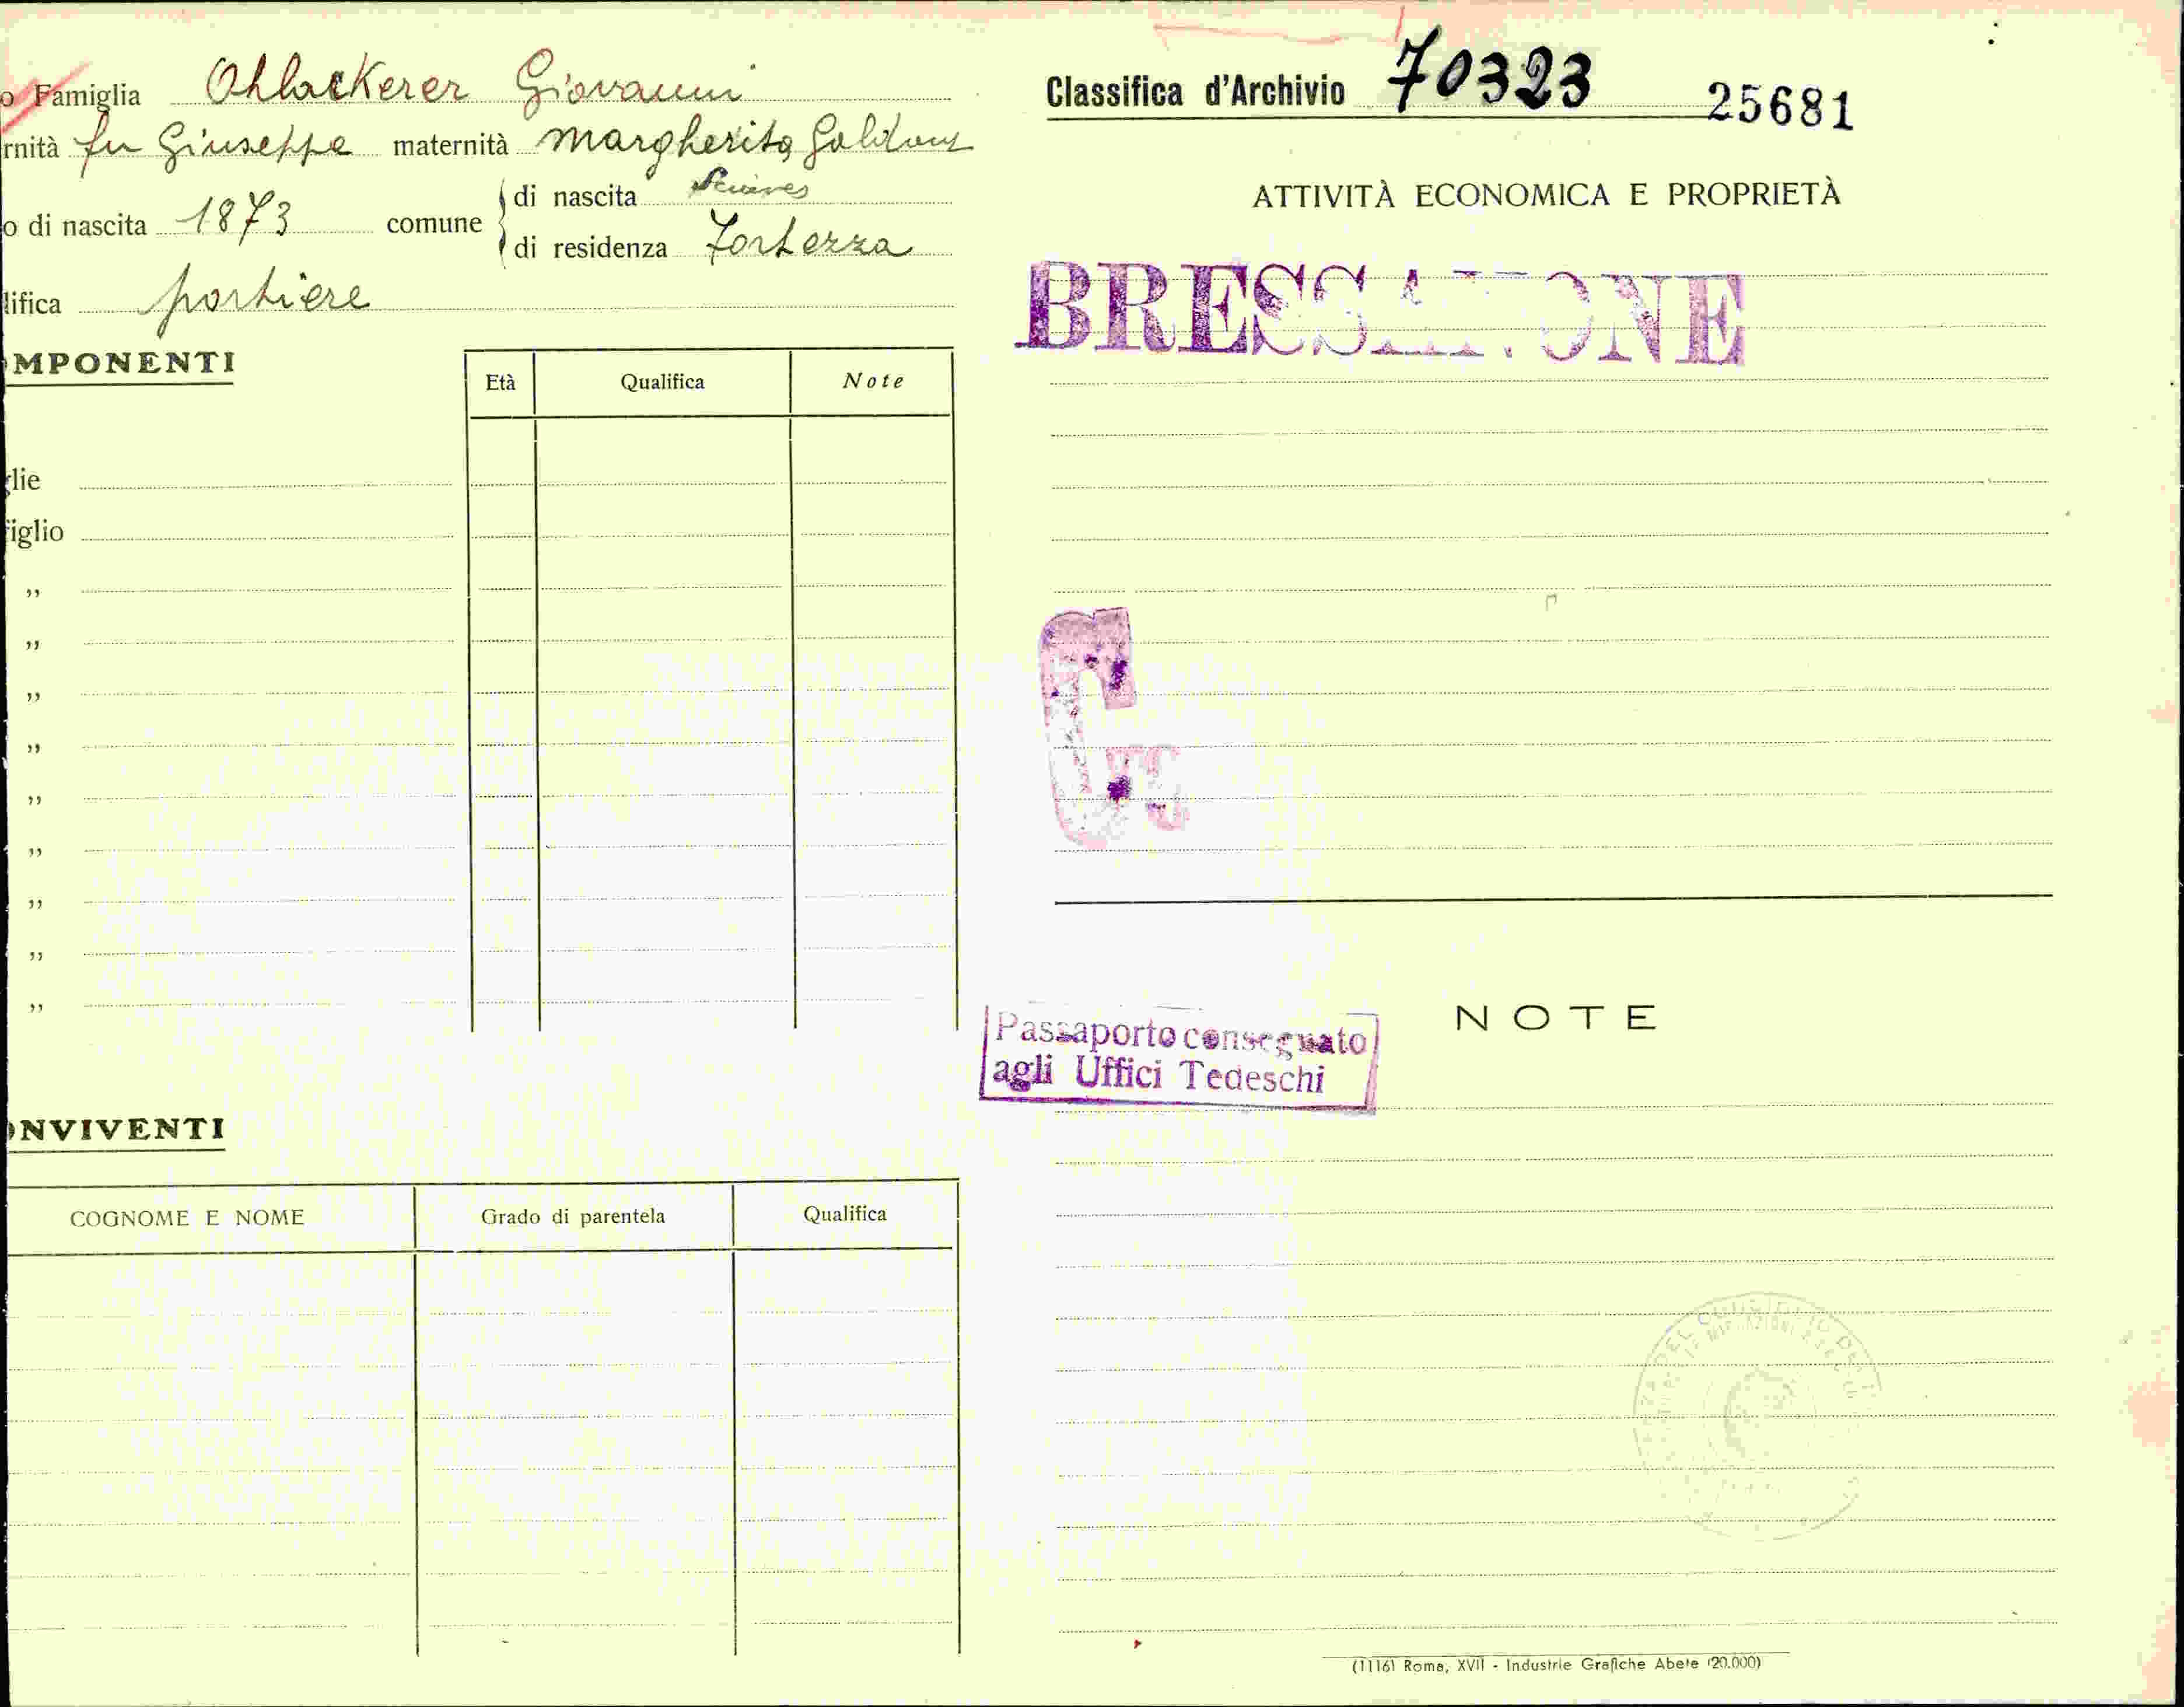 o Famiglia Ohlackerer Giovanni
rnità fu Giuseppe maternità Margherita
o di nascita 1873 comune
di nascita
di residenza Fortezza
lifica portiere
OMPONENTI
Età Qualifica Note
glie
figlio
„
„
„
„
„
„
„
„
„
ONVIVENTI
COGNOME E NOME Grado di parentela Qualifica
Classifica d'Archivio 70323 25681
ATTIVITÀ ECONOMICA E PROPRIETÀ
BRESSANONE
G
NOTE
Passaporto consegnato
agli Uffici Tedeschi
(1116) Roma, XVII - Industrie Grafiche Abete (20.000)